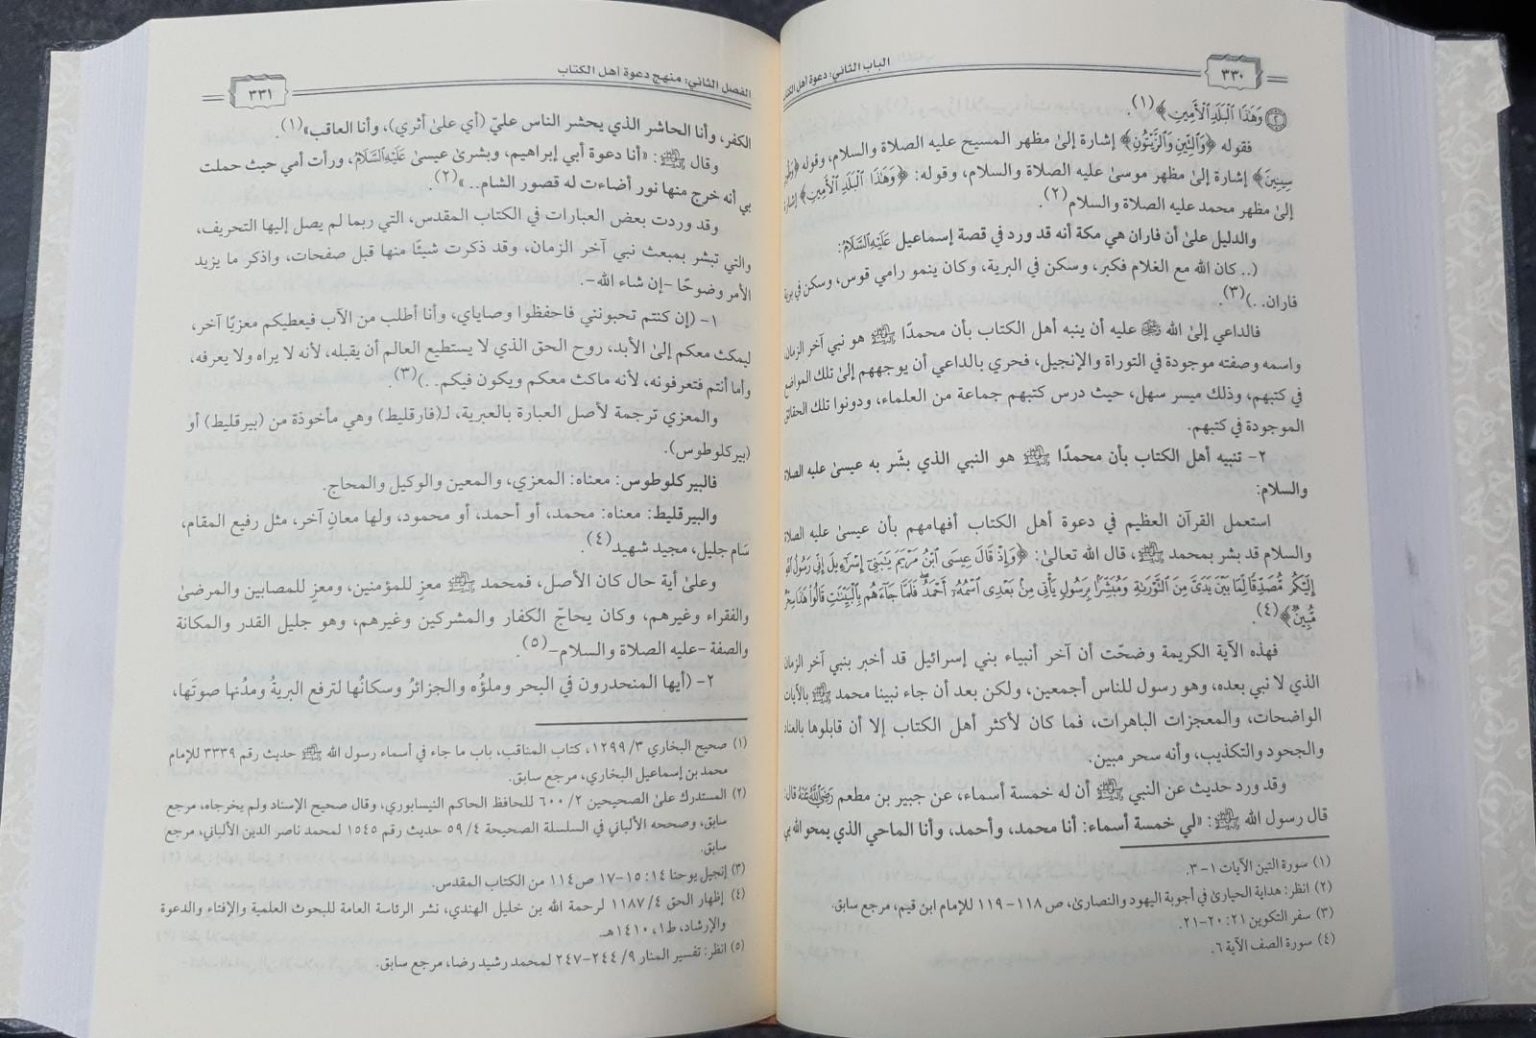 ٣٣٠
الباب الثاني: دعوة أهل
﴿٢﴾ وَهَٰذَا ٱلْبَلَدِ ٱلْأَمِينِ﴾(١).
فقوله ﴿وَٱلتِّينِ وَٱلزَّيْتُونِ﴾ إشارة إلىٰ مظهر المسيح عليه الصلاة والسلام، وقوله
سِينِينَ﴾ إشارة إلىٰ مظهر موسىٰ عليه الصلاة والسلام، وقوله: ﴿وَهَٰذَا ٱلْبَلَدِ ٱلْأَمِينِ﴾ إشارة
إلىٰ مظهر محمد عليه الصلاة والسلام(٢).
والدليل علىٰ أن فاران هي مكة أنه قد ورد في قصة إسماعيل عَلَيْهِالسَّلَامُ:
(.. كان الله مع الغلام فكبر، وسكن في البرية، وكان ينمو رامي قوس، وسكن في برية
فاران. .)(٣).
فالداعي إلىٰ الله عليه أن ينبه أهل الكتاب بأن محمدًا ﷺ هو نبي آخر الزمان
واسمه وصفته موجودة في التوراة والإنجيل، فحري بالداعي أن يوجههم إلىٰ تلك المواضع
في كتبهم، وذلك ميسر سهل، حيث درس كتبهم جماعة من العلماء، ودونوا تلك الحقائق
الموجودة في كتبهم.
٢- تنبيه أهل الكتاب بأن محمدًا ﷺ هو النبي الذي بشّر به عيسىٰ عليه الصلاة
والسلام:
استعمل القرآن العظيم في دعوة أهل الكتاب أفهامهم بأن عيسىٰ عليه الصلاة
والسلام قد بشر بمحمد ﷺ، قال الله تعالىٰ: ﴿وَإِذْ قَالَ عِيسَى ٱبْنُ مَرْيَمَ يَٰبَنِىٓ إِسْرَٰٓءِيلَ إِنِّى رَسُولُ ٱللَّهِ
إِلَيْكُم مُّصَدِّقًا لِّمَا بَيْنَ يَدَىَّ مِنَ ٱلتَّوْرَىٰةِ وَمُبَشِّرًۢا بِرَسُولٍ يَأْتِى مِنۢ بَعْدِى ٱسْمُهُۥٓ أَحْمَدُ فَلَمَّا جَآءَهُم بِٱلْبَيِّنَٰتِ قَالُوا۟ هَٰذَا سِحْرٌ
مُّبِينٌ﴾(٤).
فهذه الآية الكريمة وضحّت أن آخر أنبياء بني إسرائيل قد أخبر بنبي آخر الزمان
الذي لا نبي بعده، وهو رسول للناس أجمعين، ولكن بعد أن جاء نبينا محمد ﷺ بالآيات
الواضحات، والمعجزات الباهرات، فما كان لأكثر أهل الكتاب إلا أن قابلوها بالعناد
والجحود والتكذيب، وأنه سحر مبين.
وقد ورد حديث عن النبي ﷺ أن له خمسة أسماء، عن جبير بن مطعم رَضِيَاللَّهُعَنْهُ قال:
قال رسول الله ﷺ: «لي خمسة أسماء: أنا محمد، وأحمد، وأنا الماحي الذي يمحو الله بي
(١) سورة التين الآيات ١-٣.
(٢) انظر: هداية الحيارىٰ في أجوبة اليهود والنصارىٰ، ص ١١٨- ١١٩ للإمام ابن قيم، مرجع سابق.
(٣) سفر التكوين ٢١: ٢٠-٢١.
(٤) سورة الصف الآية ٦.
الفصل الثاني: منهج دعوة أهل الكتاب
٣٣١
الكفر، وأنا الحاشر الذي يحشر الناس عليّ (أي علىٰ أثري)، وأنا العاقب»(١).
وقال ﷺ: «أنا دعوة أبي إبراهيم، وبشرىٰ عيسىٰ عَلَيْهِالسَّلَامُ، ورأت أمي حيث حملت
بي أنه خرج منها نور أضاءت له قصور الشام.. »(٢).
وقد وردت بعض العبارات في الكتاب المقدس، التي ربما لم يصل إليها التحريف،
والتي تبشر بمبعث نبي آخر الزمان، وقد ذكرت شيئًا منها قبل صفحات، واذكر ما يزيد
الأمر وضوحًا -إن شاء الله-.
١- (إن كنتم تحبونني فاحفظوا وصاياي، وأنا أطلب من الآب فيعطيكم معزيًا آخر،
ليمكث معكم إلىٰ الأبد، روح الحق الذي لا يستطيع العالم أن يقبله، لأنه لا يراه ولا يعرفه،
وأما أنتم فتعرفونه، لأنه ماكث معكم ويكون فيكم. .)(٣).
والمعزي ترجمة لأصل العبارة بالعبرية، لـ(فارقليط) وهي مأخوذة من (بيرقليط) أو
(بيركلوطوس).
فالبيركلوطوس: معناه: المعزي، والمعين والوكيل والمحاج.
والبيرقليط: معناه: محمد، أو أحمد، أو محمود، ولها معانٍ آخر، مثل رفيع المقام،
سَام جليل، مجيد شهيد(٤).
وعلىٰ أية حال كان الأصل، فمحمد ﷺ معزٍ للمؤمنين، ومعزٍ للمصابين والمرضىٰ
والفقراء وغيرهم، وكان يحاجّ الكفار والمشركين وغيرهم، وهو جليل القدر والمكانة
والصفة -عليه الصلاة والسلام-(٥).
٢- (أيها المنحدرون في البحر وملؤُه والجزائرُ وسكانُها لترفع البريةُ ومدُنها صوتَها،
(١) صحيح البخاري ٣/ ١٢٩٩، كتاب المناقب، باب ما جاء في أسماء رسول الله ﷺ حديث رقم ٣٣٣٩ للإمام
محمد بن إسماعيل البخاري، مرجع سابق.
(٢) المستدرك علىٰ الصحيحين ٢/ ٦٠٠ للحافظ الحاكم النيسابوري، وقال صحيح الإسناد ولم يخرجاه، مرجع
سابق، وصححه الألباني في السلسلة الصحيحة ٤/ ٥٩ حديث رقم ١٥٤٥ لمحمد ناصر الدين الألباني، مرجع
سابق.
(٣) إنجيل يوحنا ١٤: ١٥-١٧ ص١١٤ من الكتاب المقدس.
(٤) إظهار الحق ٤/ ١١٨٧ لرحمة الله بن خليل الهندي، نشر الرئاسة العامة للبحوث العلمية والإفتاء والدعوة
والإرشاد، ط١، ١٤١٠هـ.
(٥) انظر: تفسير المنار ٩/ ٢٤٤-٢٤٧ لمحمد رشيد رضا، مرجع سابق.